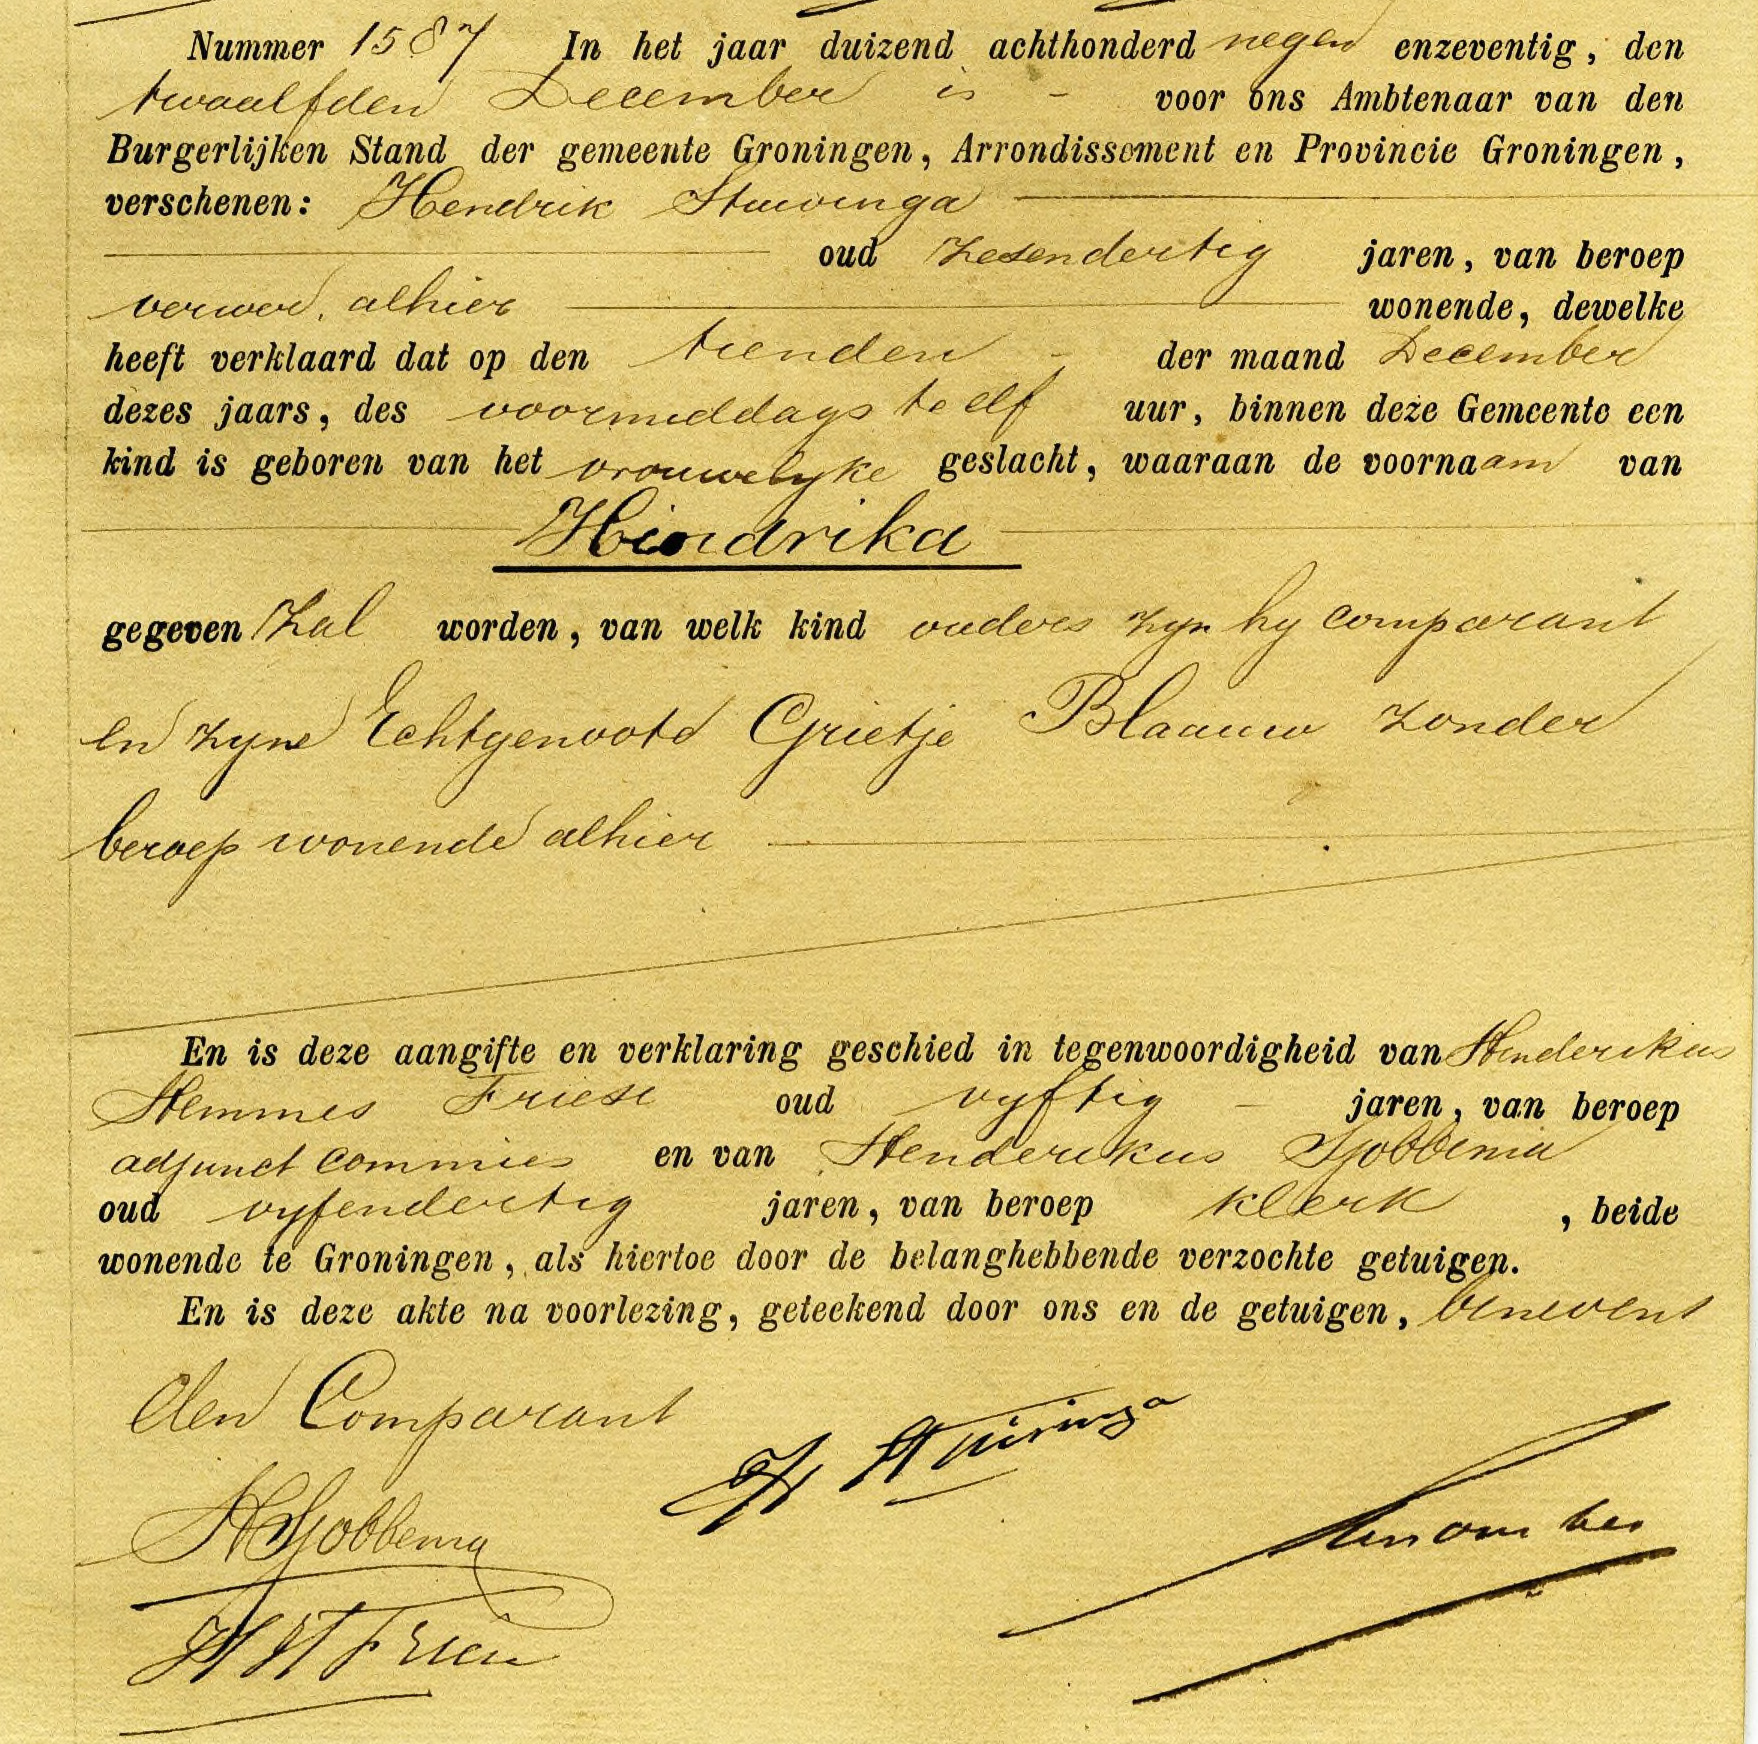 Nummer 1587 In het jaar duizend achthonderd negen enzeventig, den
twaalfden December is - voor ons Ambtenaar van den
Burgerlijken Stand der gemeente Groningen, Arrondissement en Provincie Groningen,
verschenen: Hendrik Stuivinga
oud zesendertig jaren, van beroep
verwer, alhier wonende, dewelke
heeft verklaard dat op den tienden - der maand December
dezes jaars, des voormiddags te elf uur, binnen deze Gemeente een
kind is geboren van het vrouwelyke geslacht, waaraan de voornaam van
Hindrika
gegeven zal worden, van welk kind ouders zyn hy comparant
en zyne Echtgenoote Grietje Blaauw zonder
beroep wonende alhier
En is deze aangifte en verklaring geschied in tegenwoordigheid van Henderikus
Hemmes Friese oud vyftig - jaren, van beroep
adjunct commies en van Henderikus Sjobbema
oud vyfendertig jaren, van beroep klerk, beide
wonende te Groningen, als hiertoe door de belanghebbende verzochte getuigen.
En is deze akte na voorlezing, geteekend door ons en de getuigen, benevens
den Comparant
H Stuivinga
HSjobbema
H H Friese